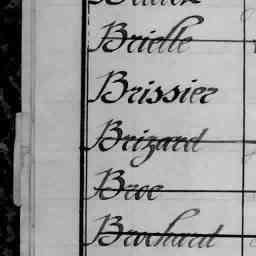 Brielle
Brissier
Brizard
Broe
Brochard